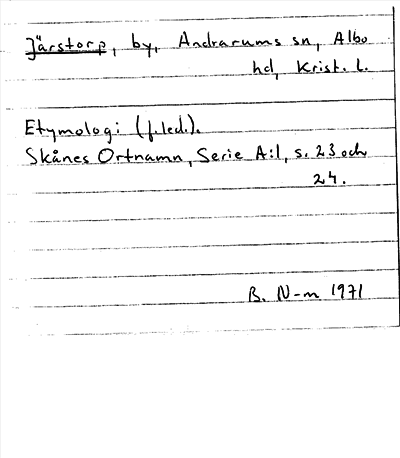 Järstorp, by, Andrarums sn, Albo
hd, Krist. l.
Etymologi (f.led.).
Skånes Ortnamn, Serie A:1, s. 23 och
24.
B. N-m 1971